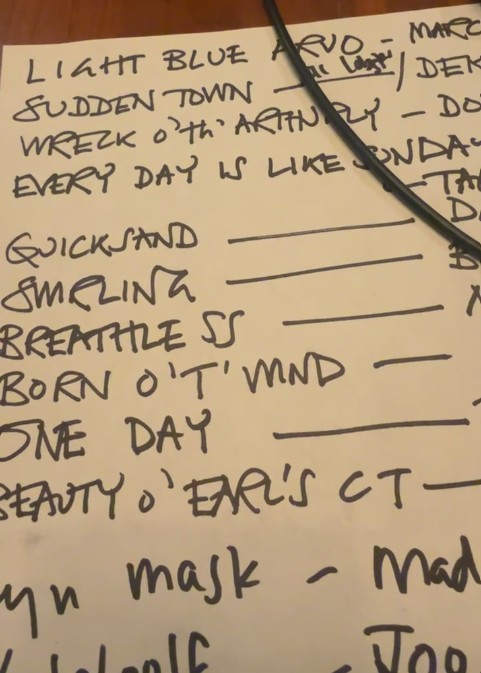 LIGHT BLUE ARVO - MARC
SUDDEN TOWN — / DEK
WRECK O'th' ARTHNRLY - DO
EVERY DAY IS LIKE SUNDAY
- TA
D
QUICKSAND — B
SMRLING —
BREATHLESS —
BORN O'T' WIND —
ONE DAY —
BEAUTY O' EARL'S CT —
yn mask - mad
Woolf - Joo